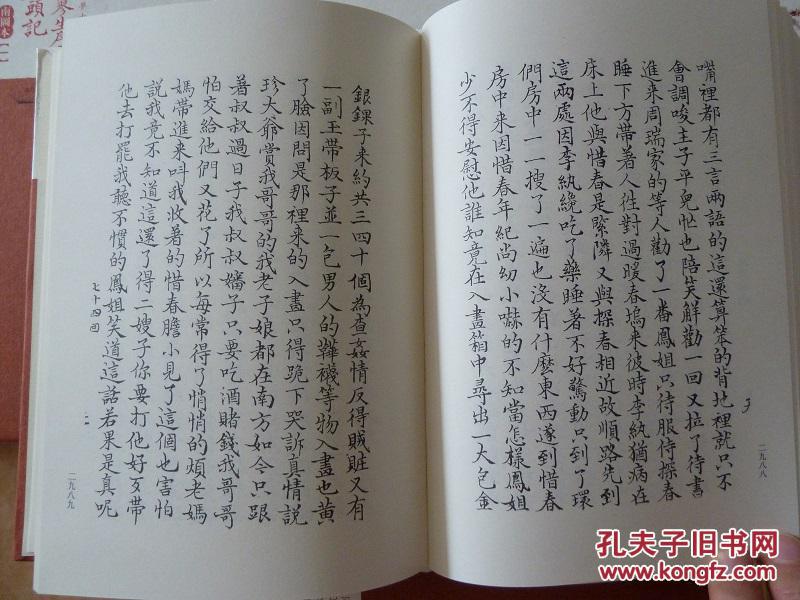 嘴裡都有三言兩語的這還算笨的背地裡就只不
會調唆主子平兒忙也陪笑解勸一回又拉了侍書
進來周瑞家的等人勸了一番鳳姐只待服侍探春
睡下方帶著人徃對過暖春塢来彼時李紈猶病在
床上他與惜春是緊隣又與探春相近故順路先到
這兩處因李紈纔吃了藥睡著不好驚動只到了環
們房中一一搜了一遍也沒有什麽東西遂到惜春
房中来因惜春年紀尚幼小嚇的不知當怎樣鳳姐
少不得安慰他誰知竟在入畫箱中尋出一大包金
二九八八
銀錁子来約共三四十個為查姦情反得賊贓又有
一副玉帶板子並一包男人的鞾襪等物入畫也黃
了臉因問是那裡来的入畫只得跪下哭訴真情說
珍大爺賞我哥哥的我老子娘都在南方如今只跟
著叔叔過日子我叔叔嬸子只要吃酒賭錢我哥哥
怕交給他們又花了所以每常得了悄悄的煩老媽
媽帶進来呌我收著的惜春膽小見了這個也害怕
說我竟不知道這還了得二嫂子你要打他好歹帶
他去打罷我聽不慣的鳳姐笑道這話若果是真呢
七十四回
二九八九
南圖本
頭記
孔夫子旧书网
www.kongfz.com